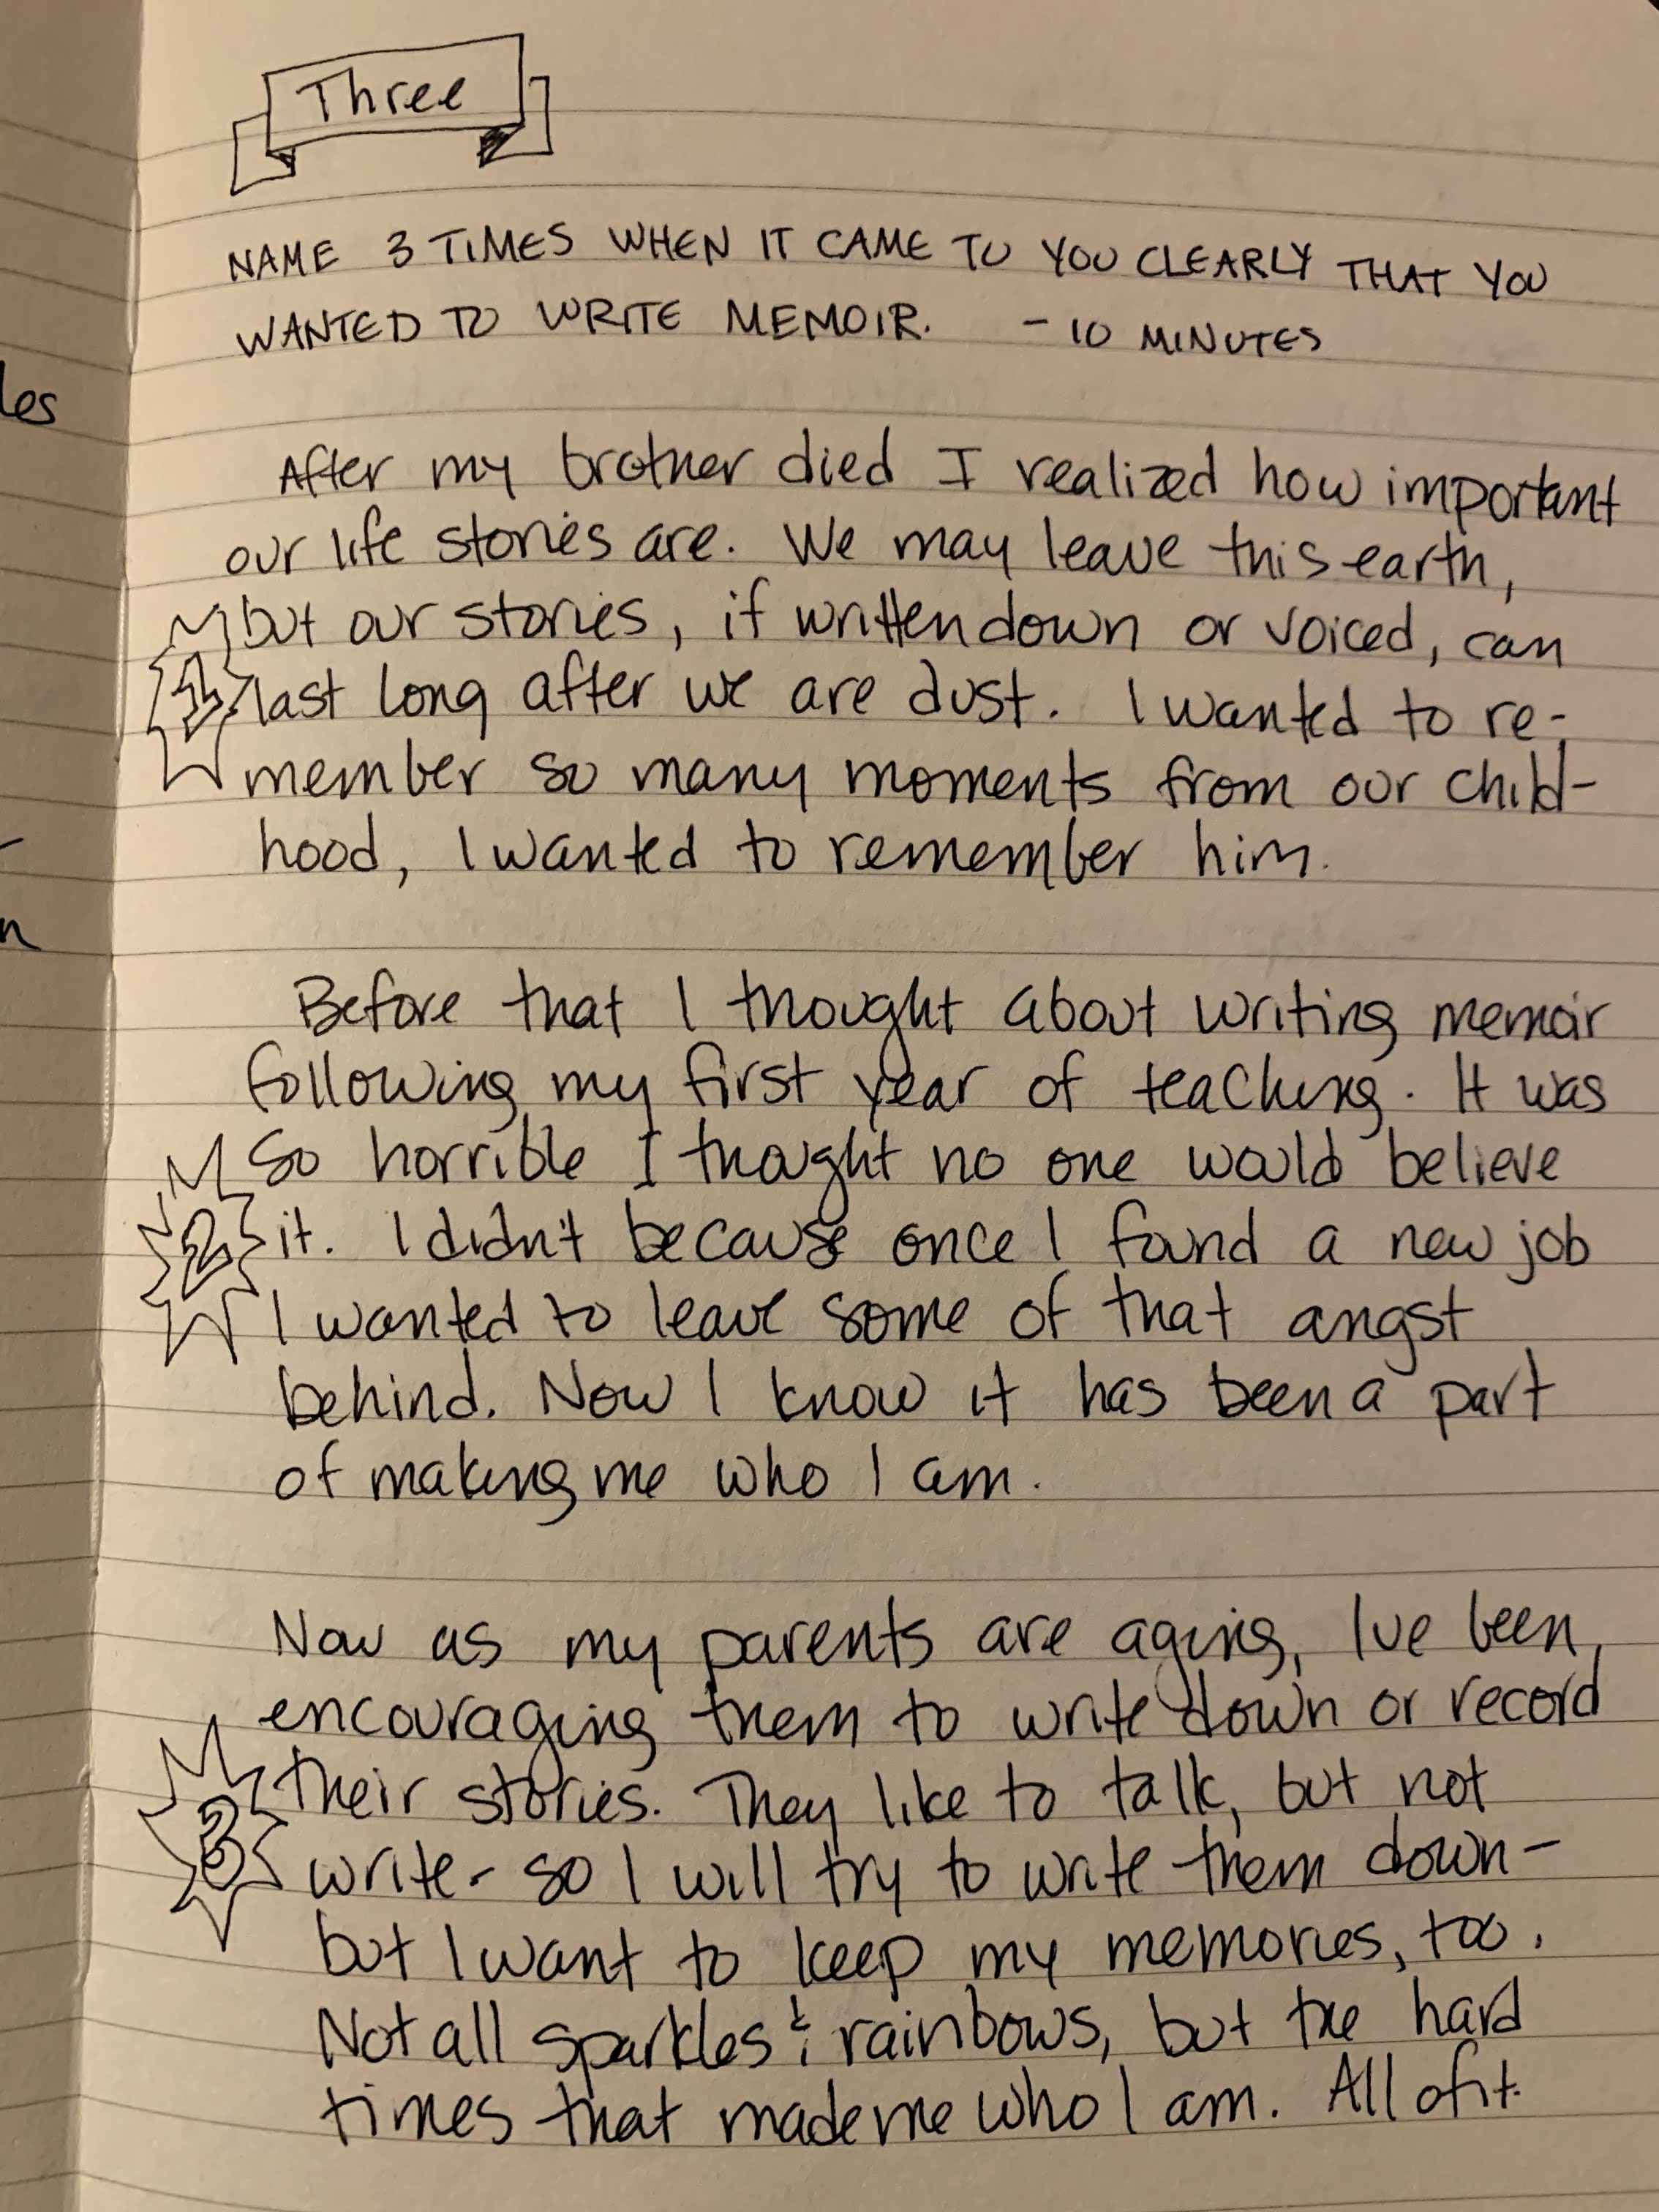 Three
NAME 3 TIMES WHEN IT CAME TO YOU CLEARLY THAT YOU
WANTED TO WRITE MEMOIR. - 10 MINUTES
les
After my brother died I realized how important
our life stories are. We may leave this earth,
but our stories, if written down or voiced, can
1
last long after we are dust. I wanted to re-
member so many moments from our child-
hood, I wanted to remember him.
n
Before that I thought about writing memoir
following my first year of teaching. It was
so horrible I thought no one would believe
2
it. I didn't because once I found a new job
I wanted to leave some of that angst
behind. Now I know it has been a part
of making me who I am.
Now as my parents are aging, I've been
encouraging them to write down or record
their stories. They like to talk, but not
3
write - so I will try to write them down -
but I want to keep my memories, too.
Not all sparkles & rainbows, but the hard
times that made me who I am. All of it.